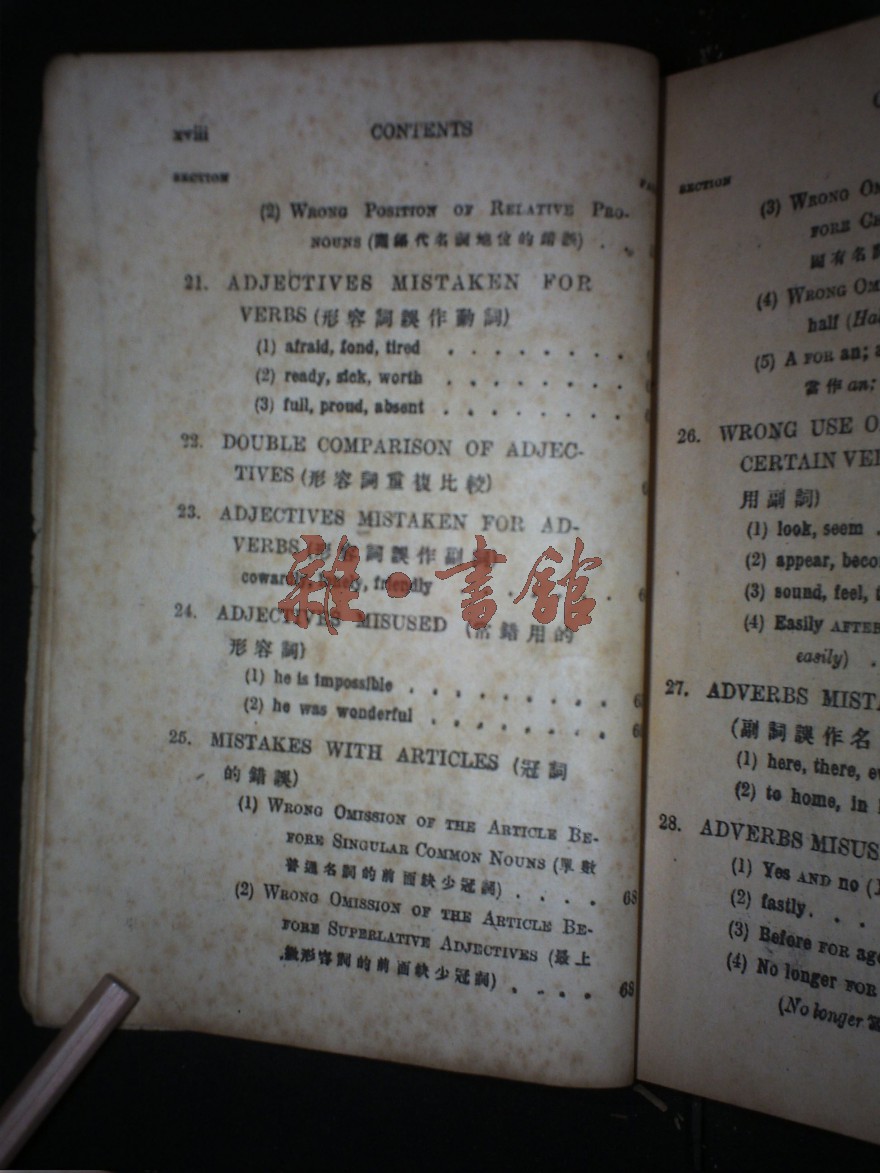 xviii CONTENTS
SECTION
(2) WRONG POSITION OF RELATIVE PRO-
NOUNS (關係代名詞地位的錯誤) . .
21. ADJECTIVES MISTAKEN FOR
VERBS (形容詞誤作動詞)
(1) afraid, fond, tired . . . . . . .
(2) ready, sick, worth . . . . . . .
(3) full, proud, absent . . . . . . .
22. DOUBLE COMPARISON OF ADJEC-
TIVES (形容詞重複比較)
23. ADJECTIVES MISTAKEN FOR AD-
VERBS (形容詞誤作副詞)
cowardly, lonely, friendly . . . .
24. ADJECTIVES MISUSED (常錯用的
形容詞)
(1) he is impossible . . . . . . . .
(2) he was wonderful . . . . . . .
25. MISTAKES WITH ARTICLES (冠詞
的錯誤)
(1) WRONG OMISSION OF THE ARTICLE BE-
FORE SINGULAR COMMON NOUNS (單數
普通名詞的前面缺少冠詞) . . . . 68
(2) WRONG OMISSION OF THE ARTICLE BE-
FORE SUPERLATIVE ADJECTIVES (最上
級形容詞的前面缺少冠詞) . . . . 68
雜·書館
SECTION
(3) WRONG
FORE
固有名
(4) WRONG
half
(5) A FOR an;
當作 an;
26. WRONG USE
CERTAIN
用副詞)
(1) look, seem .
(2) appear,
(3) sound, feel,
(4) Easily AFTER
easily) .
27. ADVERBS
(副詞誤作名
(1) here, there,
(2) to home, in
28. ADVERBS
(1) Yes AND no
(2) fastly. . .
(3) Before FOR
(4) No longer FOR
(No longer